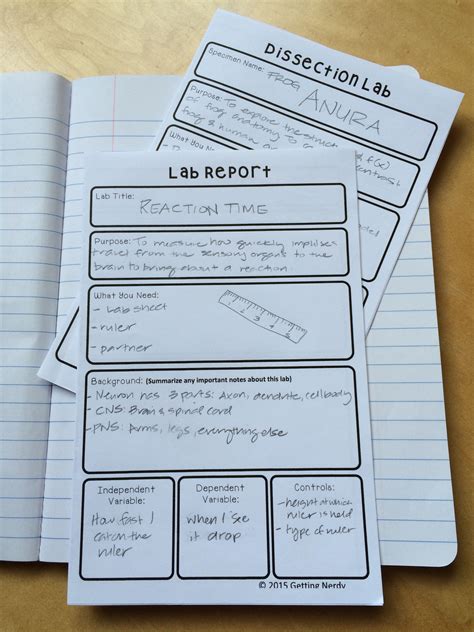 Dissection Lab
Specimen Name: FROG
ANURA
Purpose: To explore the
of frog anatomy to
frog & human
What You Need:
Lab Report
Lab Title:
REACTION TIME
Purpose: To measure how quickly implises
travel from the sensory organs to the
brain to bring about a reaction
What You Need:
- Lab sheet
- ruler
- partner
1 2 3 4 5
Background: (Summarize any important notes about this lab)
- Neuron has 3 parts: Axon, dendrite, cell body
- CNS: Brain & spinal cord
- PNS: Arms, legs, everything else
Independent
Variable:
How fast I
catch the
ruler
Dependent
Variable:
When I see
it drop
Controls:
- height at which
ruler is held
- type of ruler
© 2015 Getting Nerdy